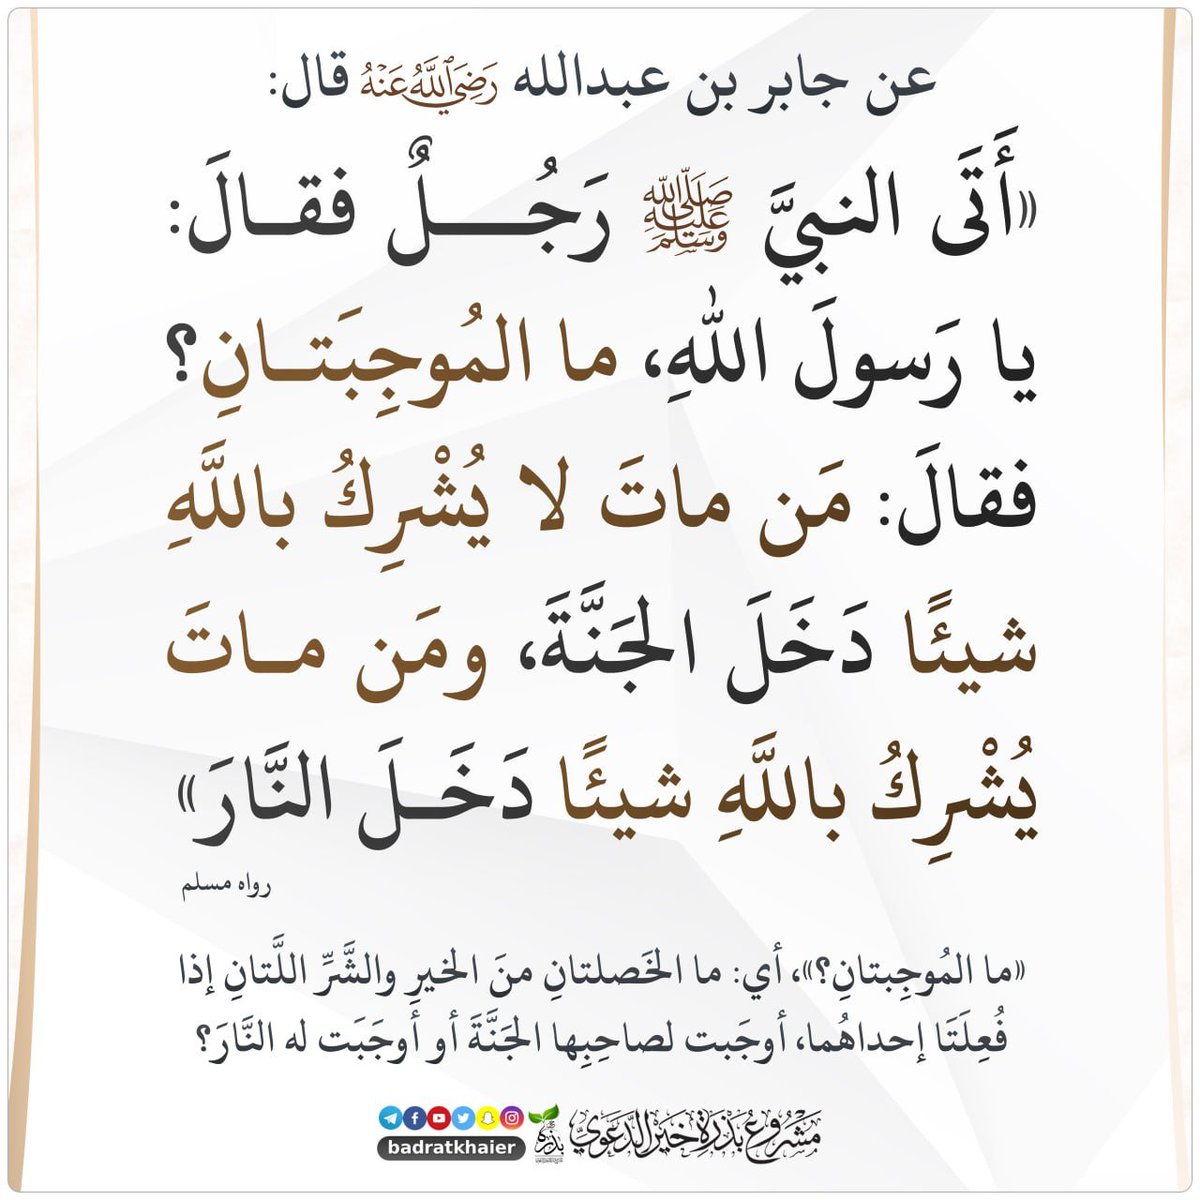 عن جابر بن عبدالله رَضِيَ ٱللَّهُ عَنْهُ قال:
«أَتَى النبيَّ ﷺ رَجُـــلٌ فقــالَ:
يا رَسولَ اللهِ، ما المُوجِبَتــانِ؟
فقالَ: مَن ماتَ لا يُشْرِكُ باللَّهِ
شيئًا دَخَلَ الجَنَّةَ، ومَن مــاتَ
يُشْرِكُ باللَّهِ شيئًا دَخَــلَ النَّارَ»
رواه مسلم
«ما المُوجِبتانِ؟»، أي: ما الخَصلتانِ منَ الخيرِ والشَّرِّ اللَّتانِ إذا
فُعِلَتَا إحداهُما، أوجَبت لصاحِبِها الجَنَّةَ أو أوجَبَت له النَّارَ؟
مَشْرُوعُ بَذْرَةِ خَيْرٍ الدَّعَوِيّ
بذرة
badratkhaier